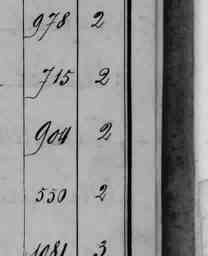 978 2
715 2
904 2
550 2
1081 3